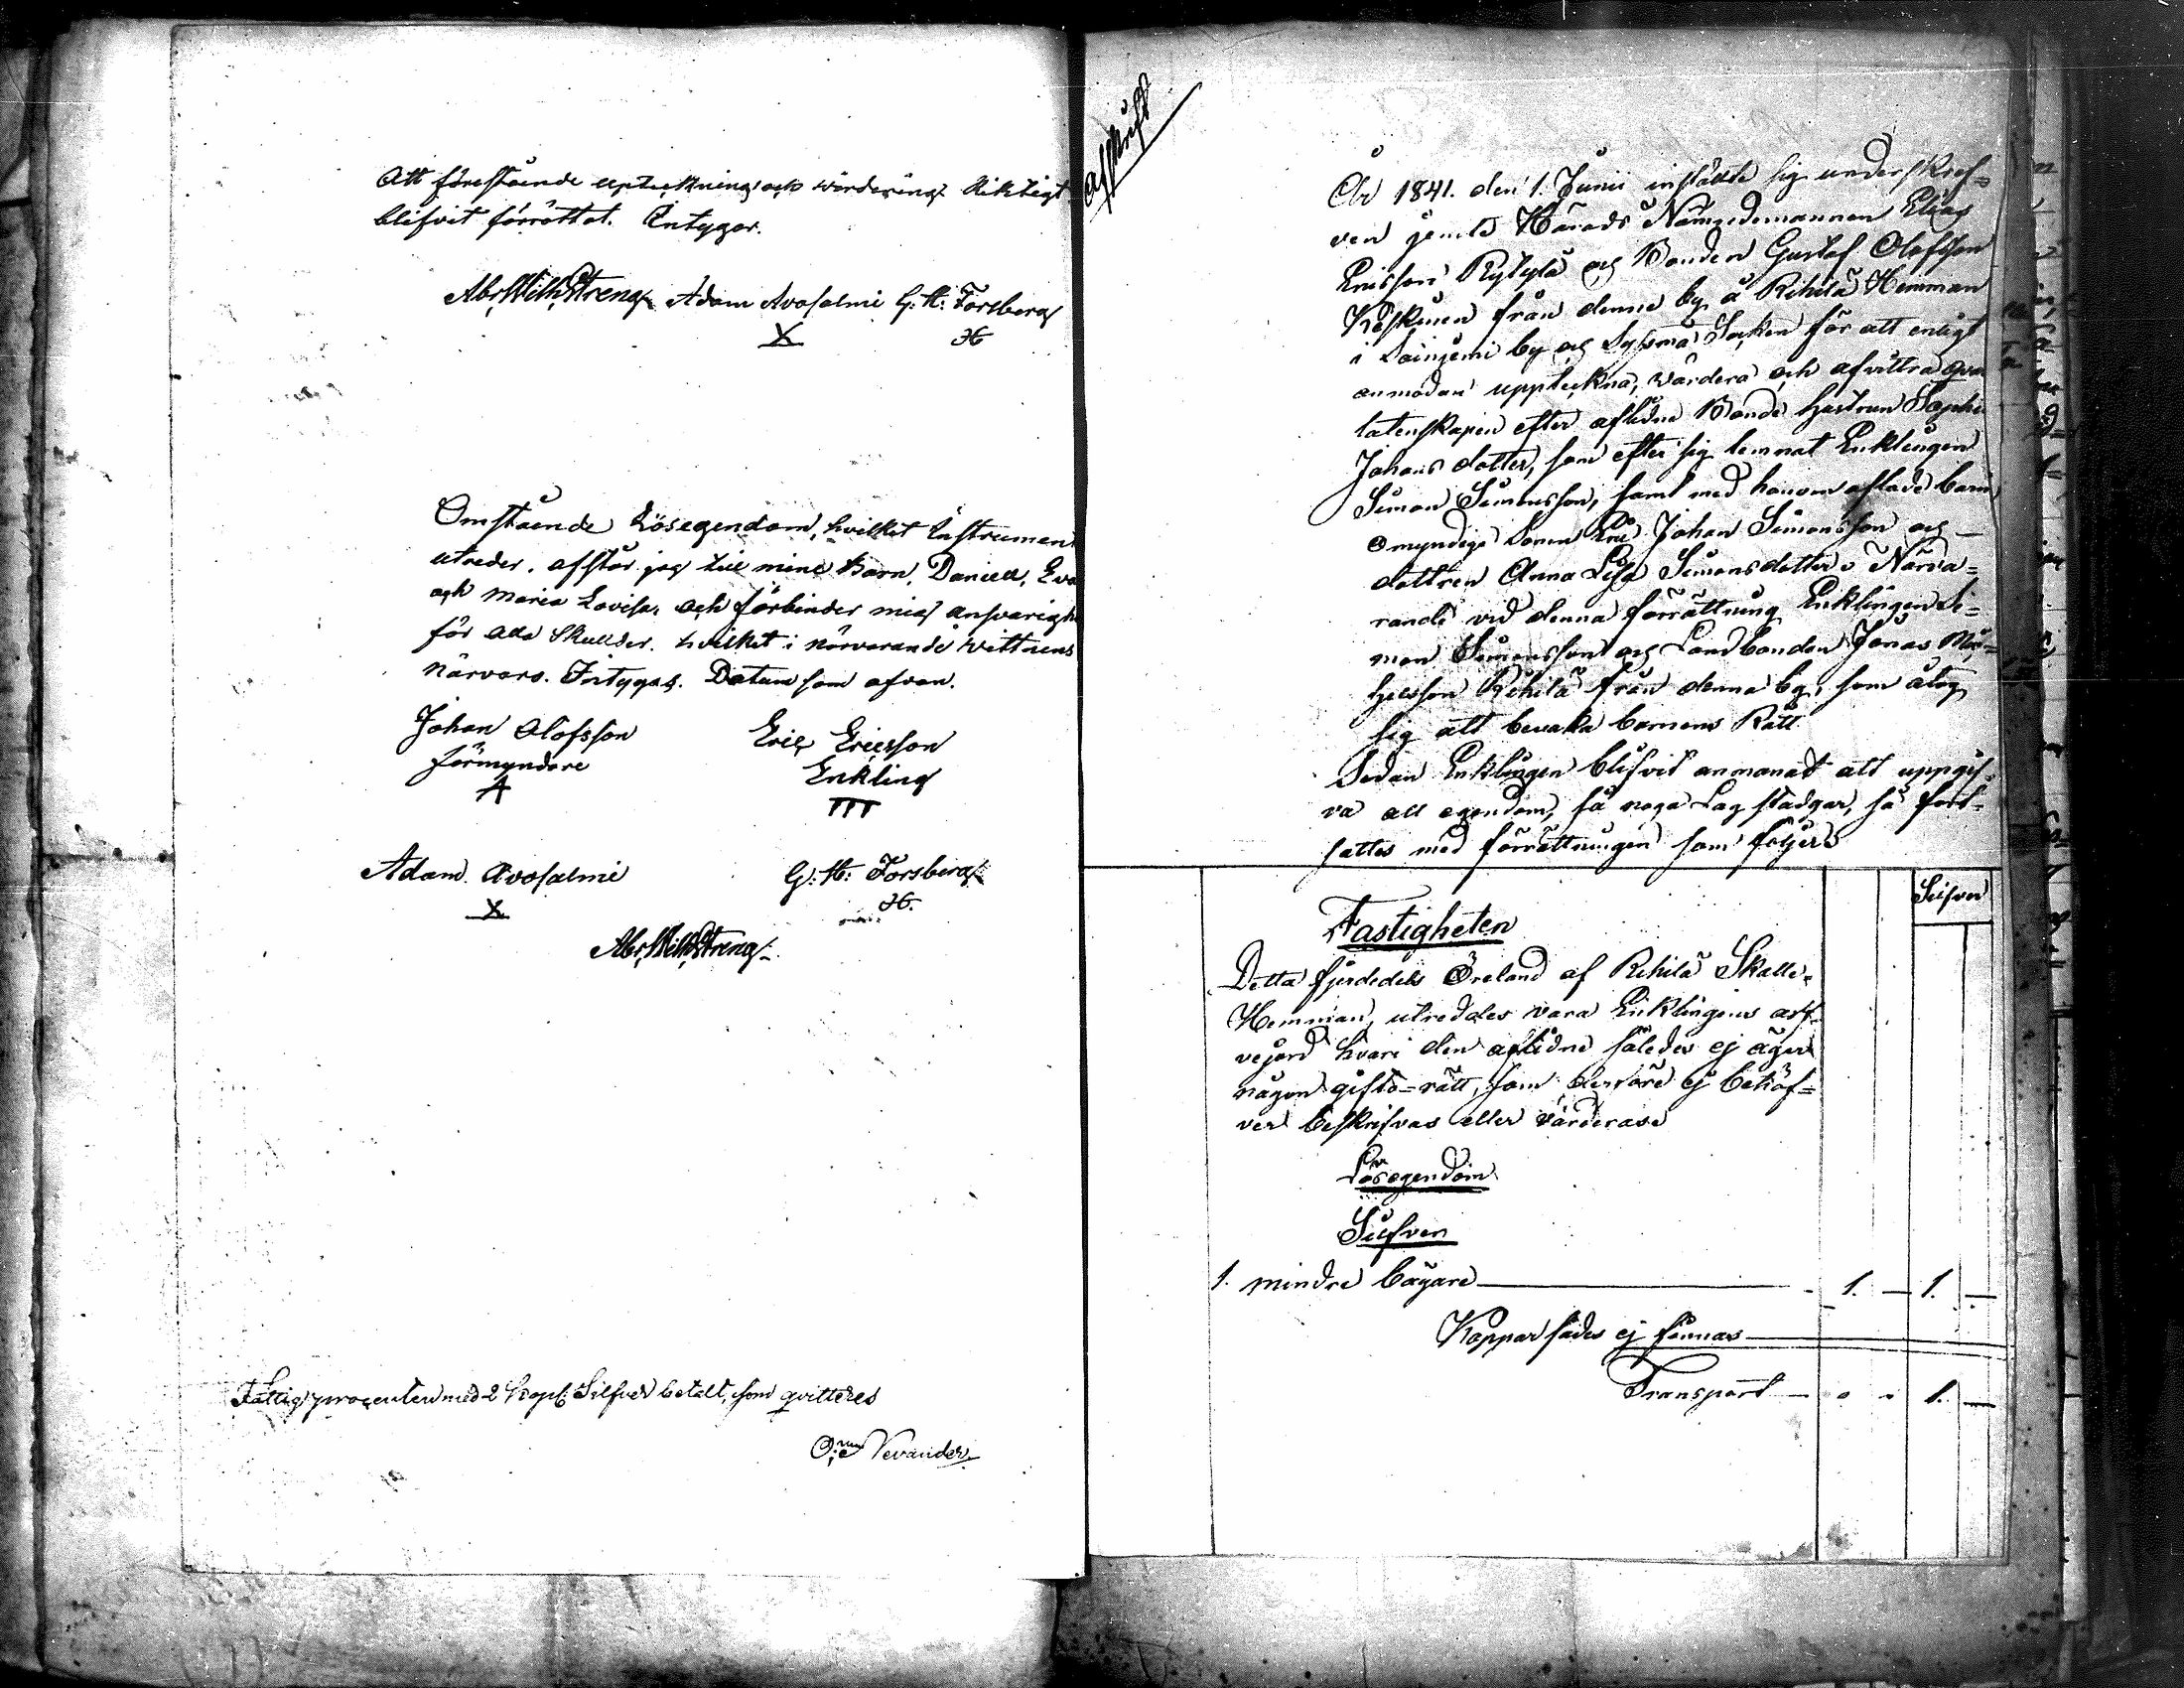 Att förestående upteckning och wärdering Riktigt
blifvit förrättat. Intygar.
Abr, Wilh, Streng Adam Avosalmi G. H. Forsberg
X H
Omstående Lösegendom, hvilket Instrument
utreder, afstår jag till mine Barn, Daniel, Eva
och Maria Lovisa, och förbinder mig answarighet
för alla Skulder. hvilket i närvarande Wittnens
Närvaro. Intygas. Datum som ofvan.
Johan Olofsson
Förmyndare
A
Eric Ericsson
Enkling
III
Adam Avosalmi
X
G: H: Forsberg
H.
Abr, Wilh, Streng
Fattig procenten med 2 kop: Silfver betalt, som qvitteres
Nevander
Afskrift
År 1841. den 1. Junii instälte sig underskref=
ven jemte Härads Nämndemannen Elias
Ericsson Rytylä och Bonden Gustaf Olofsson
Keskinen från denne by å Rihilä Hemman
i by och Sysmä Socken för att enligt
anmodan uppteckna, värdera och afvittra qvar
latenskapen efter aflidne Bonde hustrun Sophia
Johans dotter, som efter sig lemnat Enklingen
Simon Simonsson, samt med honom aflade barn,
omyndige Sonen Johan Simonsson och
dottren Anna Lisa Simonsdotter. Närva=
rande vid denna förrättning Enklingen Si=
mon Simonsson och Landbonden Jonas Mic=
helsson Rihilä från denna by, som åtog
sig att bevaka barnens Rätt
Sedan Enklingen blifvit anmanat att uppgif=
va all egendom, så noga Lag stadgar, så fort=
sattes med förrättningen som följer
Silfver
Fastigheten
Detta fjerdedels Öreland af Rihilä Skatte
Hemman, utreddes vara Enklingens arf
vejord hvari den aflidne således ej äger
någon gifto=rätt, som derföre ej behöf=
ver beskrifvas eller värderas
Lösegendom
Silfver
1. mindre bägare 1. — 1. —
Koppar sades ej finnas
Transport — " " 1. —